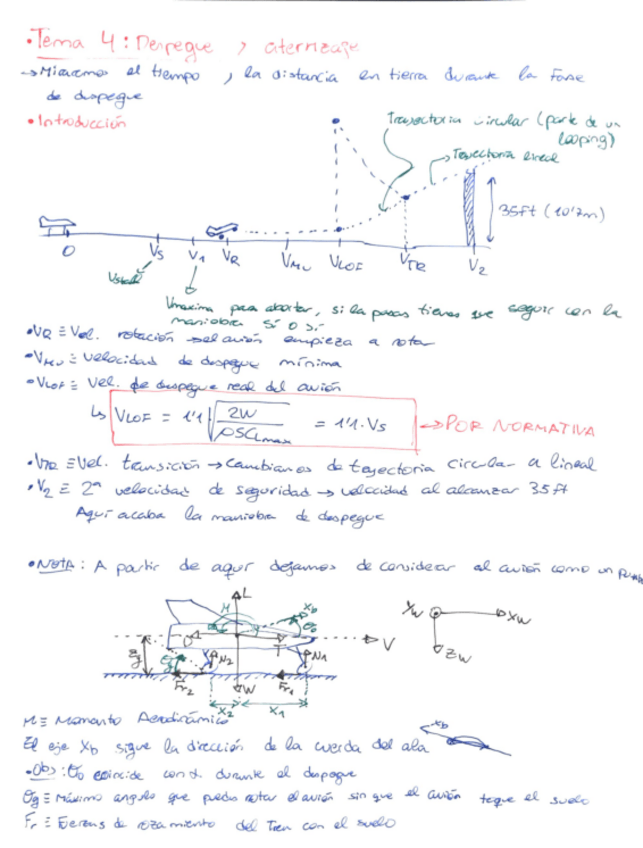 •Tema 4: Despegue y aterrizaje
→Miraremos el tiempo y la distancia en tierra durante la fase
de despegue
•Introducción
Trayectoria circular (parte de un
looping)
Trayectoria lineal
35ft (10'7m)
0 Vs V1 VR VMU VLOF VTR V2
Vstall
Vmaxima para abortar, si la pasas tienes que seguir con la
maniobra sí o sí
•VR ≡ Vel. rotación → el avión empieza a rotar
•VMU ≡ velocidad de despegue mínima
•VLOF ≡ Vel. de despegue real del avión
↳ VLOF = 1'1 √(2W/ρSCLmax) = 1'1·Vs → POR NORMATIVA
•VTR ≡ Vel. transición → cambiamos de trayectoria circular a lineal
•V2 ≡ 2ª velocidad de seguridad → velocidad al alcanzar 35ft
Aquí acaba la maniobra de despegue
•NOTA: A partir de aquí dejamos de considerar el avión como un
L
M xb
θ0
Yw xw
D T V
zg θg N2 N1 zw
Fr2 W Fr1
x2 x1
M ≡ Momento Aerodinámico
El eje xb sigue la dirección de la cuerda del ala xb
•Obs: θ0 coincide con α durante el despegue
θg ≡ Máximo angulo que puedes rotar el avión sin que el avión toque el suelo
Fr ≡ Fuerzas de rozamiento del Tren con el suelo